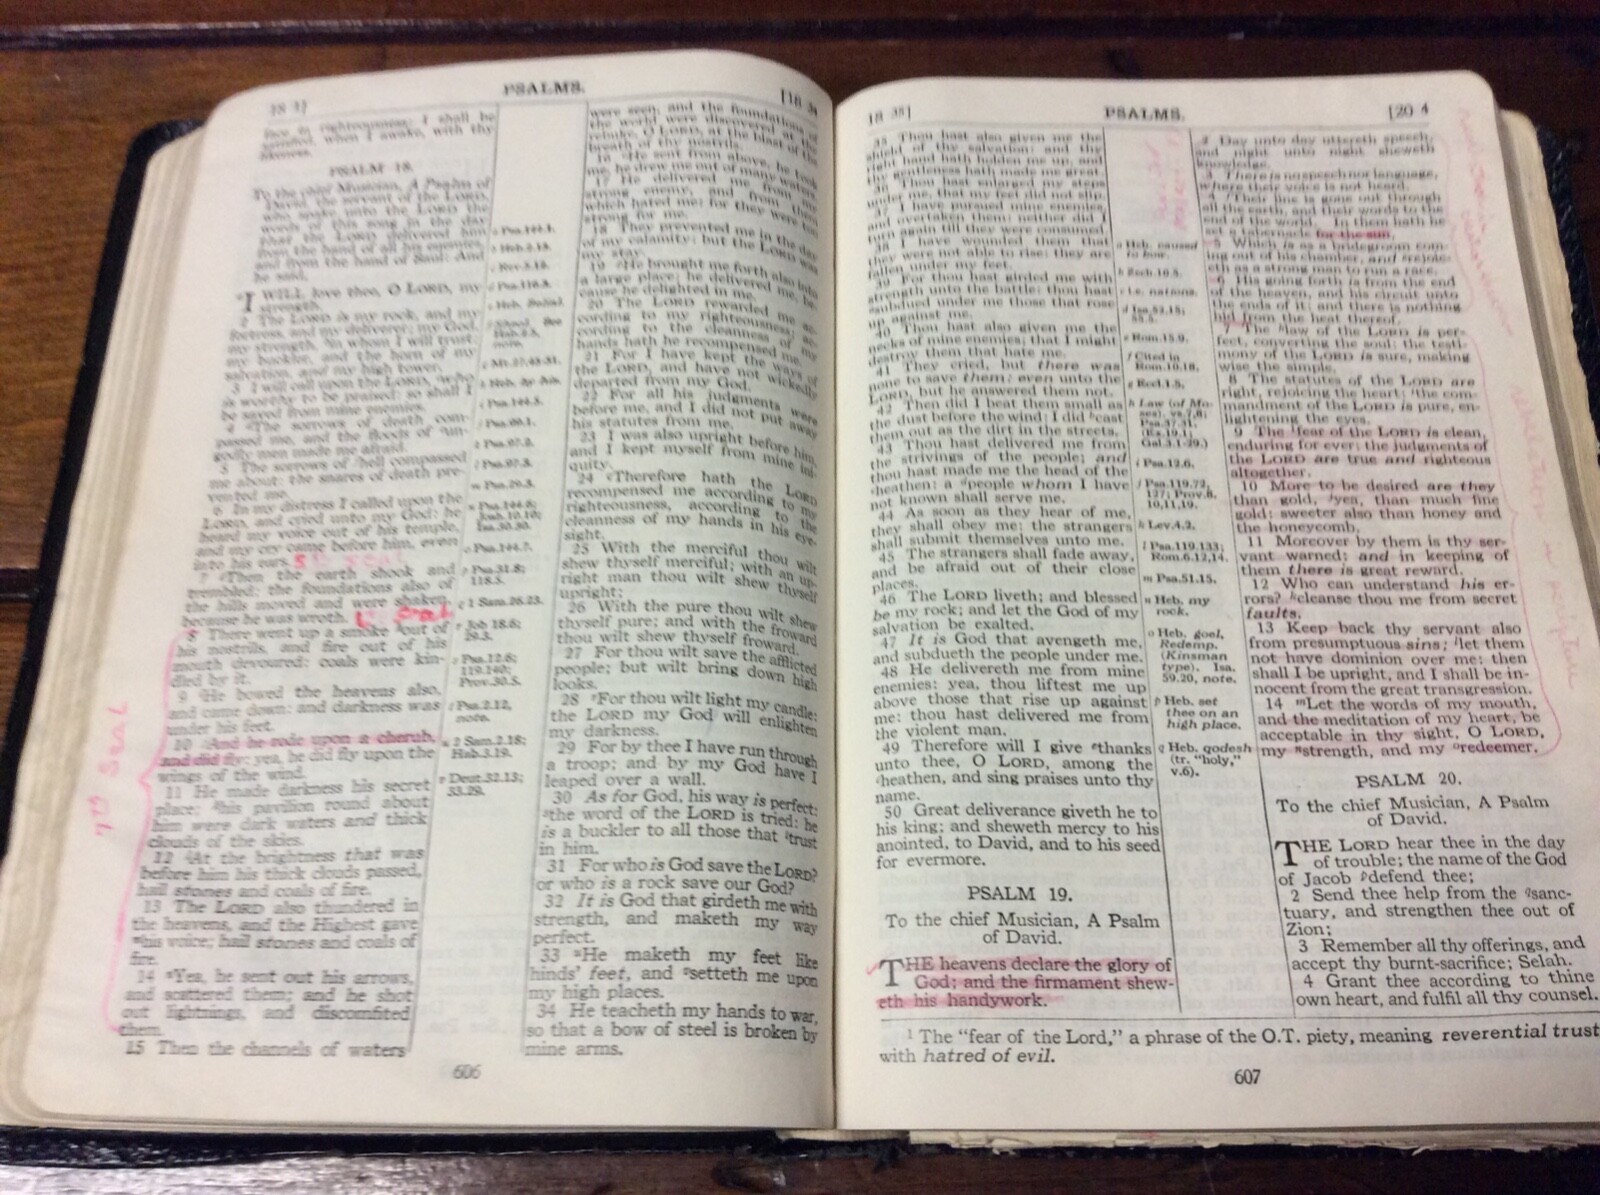 18 1]
PSALMS.
[18 34
face in righteousness: I shall be
satisfied, when I awake, with thy
likeness.
PSALM 18.
To the chief Musician, A Psalm of
David, the servant of the LORD,
who spake unto the LORD the
words of this song in the day
that the LORD delivered him
from the hand of all his enemies,
and from the hand of Saul: And
he said,
I WILL love thee, O LORD, my
strength.
2 The LORD is my rock, and my
fortress, and my deliverer; my God,
my strength, in whom I will trust;
my buckler, and the horn of my
salvation, and my high tower.
3 I will call upon the LORD, who
is worthy to be praised: so shall I
be saved from mine enemies.
4 The sorrows of death com-
passed me, and the floods of un-
godly men made me afraid.
5 The sorrows of hell compassed
me about: the snares of death pre-
vented me.
6 In my distress I called upon the
LORD, and cried unto my God: he
heard my voice out of his temple,
and my cry came before him, even
into his ears.
7 Then the earth shook and
trembled; the foundations also of
the hills moved and were shaken,
because he was wroth.
8 There went up a smoke out of
his nostrils, and fire out of his
mouth devoured: coals were kin-
dled by it.
9 He bowed the heavens also,
and came down: and darkness was
under his feet.
10 And he rode upon a cherub,
and did fly: yea, he did fly upon the
wings of the wind.
11 He made darkness his secret
place; his pavilion round about
him were dark waters and thick
clouds of the skies.
12 At the brightness that was
before him his thick clouds passed,
hail stones and coals of fire.
13 The LORD also thundered in
the heavens, and the Highest gave
his voice; hail stones and coals of
fire.
14 Yea, he sent out his arrows,
and scattered them; and he shot
out lightnings, and discomfited
them.
15 Then the channels of waters
7th Seal
Psa.144.1.
Heb.2.13.
Psa.31.8;
118.5.
1 Sam.26.23.
Job 18.6;
29.3.
Psa.12.6;
119.140;
Prov.30.5.
Psa.2.12,
note.
2 Sam.2.18;
Hab.3.19.
Deut.32.13;
33.29.
were seen, and the foundations of
the world were discovered at thy
rebuke, O LORD, at the blast of the
breath of thy nostrils.
16 He sent from above, he took
me, he drew me out of many waters.
17 He delivered me from my
strong enemy, and from them
which hated me: for they were too
strong for me.
18 They prevented me in the day
of my calamity: but the LORD was
my stay.
19 He brought me forth also into
a large place; he delivered me, be-
cause he delighted in me.
20 The LORD rewarded me ac-
cording to my righteousness; ac-
cording to the cleanness of my
hands hath he recompensed me.
21 For I have kept the ways of
the LORD, and have not wickedly
departed from my God.
22 For all his judgments were
before me, and I did not put away
his statutes from me.
23 I was also upright before him,
and I kept myself from mine ini-
quity.
24 Therefore hath the LORD
recompensed me according to my
righteousness, according to the
cleanness of my hands in his eye-
sight.
25 With the merciful thou wilt
shew thyself merciful; with an up-
right man thou wilt shew thyself
upright;
26 With the pure thou wilt shew
thyself pure; and with the froward
thou wilt shew thyself froward.
27 For thou wilt save the afflicted
people; but wilt bring down high
looks.
28 For thou wilt light my candle:
the LORD my God will enlighten
my darkness.
29 For by thee I have run through
a troop; and by my God have I
leaped over a wall.
30 As for God, his way is perfect:
the word of the LORD is tried: he
is a buckler to all those that trust
in him.
31 For who is God save the LORD?
or who is a rock save our God?
32 It is God that girdeth me with
strength, and maketh my way
perfect.
33 He maketh my feet like
hinds' feet, and setteth me upon
my high places.
34 He teacheth my hands to war,
so that a bow of steel is broken by
mine arms.
606
18 35]
PSALMS.
[20 4
35 Thou hast also given me the
shield of thy salvation: and thy
right hand hath holden me up, and
thy gentleness hath made me great.
36 Thou hast enlarged my steps
under me, that my feet did not slip.
37 I have pursued mine enemies,
and overtaken them: neither did I
turn again till they were consumed.
38 I have wounded them that
they were not able to rise: they are
fallen under my feet.
39 For thou hast girded me with
strength unto the battle: thou hast
subdued under me those that rose
up against me.
40 Thou hast also given me the
necks of mine enemies; that I might
destroy them that hate me.
41 They cried, but there was
none to save them: even unto the
LORD, but he answered them not.
42 Then did I beat them small as
the dust before the wind: I did cast
them out as the dirt in the streets.
43 Thou hast delivered me from
the strivings of the people; and
thou hast made me the head of the
heathen: a people whom I have
not known shall serve me.
44 As soon as they hear of me,
they shall obey me: the strangers
shall submit themselves unto me.
45 The strangers shall fade away,
and be afraid out of their close
places.
46 The LORD liveth; and blessed
be my rock; and let the God of my
salvation be exalted.
47 It is God that avengeth me,
and subdueth the people under me.
48 He delivereth me from mine
enemies: yea, thou liftest me up
above those that rise up against
me: thou hast delivered me from
the violent man.
49 Therefore will I give thanks
unto thee, O LORD, among the
heathen, and sing praises unto thy
name.
50 Great deliverance giveth he to
his king; and sheweth mercy to his
anointed, to David, and to his seed
for evermore.
PSALM 19.
To the chief Musician, A Psalm
of David.
THE heavens declare the glory of
God; and the firmament shew-
eth his handywork.
a Heb. caused
to bow.
b Zech.10.5.
c i.e. nations.
d Isa.52.15;
55.5.
e Rom.15.9.
f Cited in
Rom.10.18.
g Eccl.1.5.
h Law (of Mo-
ses). vs.7,8;
Psa.37.31.
(Ex.19.1;
Gal.3.1-29.)
i Psa.12.6.
j Psa.119.72,
127; Prov.8.
10,11,19.
k Lev.4.2.
l Psa.119.133;
Rom.6.12,14.
m Psa.51.15.
n Heb. my
rock.
o Heb. goel,
Redemp.
(Kinsman
type). Isa.
59.20, note.
p Heb. set
thee on an
high place.
q Heb. qodesh
(tr. "holy,"
v.6).
2 Day unto day uttereth speech,
and night unto night sheweth
knowledge.
3 There is no speech nor language,
where their voice is not heard.
4 Their line is gone out through
all the earth, and their words to the
end of the world. In them hath he
set a tabernacle for the sun,
5 Which is as a bridegroom com-
ing out of his chamber, and rejoic-
eth as a strong man to run a race.
6 His going forth is from the end
of the heaven, and his circuit unto
the ends of it: and there is nothing
hid from the heat thereof.
7 The law of the LORD is per-
fect, converting the soul: the testi-
mony of the LORD is sure, making
wise the simple.
8 The statutes of the LORD are
right, rejoicing the heart: the com-
mandment of the LORD is pure, en-
lightening the eyes.
9 The ¹fear of the LORD is clean,
enduring for ever: the judgments of
the LORD are true and righteous
altogether.
10 More to be desired are they
than gold, yea, than much fine
gold: sweeter also than honey and
the honeycomb.
11 Moreover by them is thy ser-
vant warned: and in keeping of
them there is great reward.
12 Who can understand his er-
rors? cleanse thou me from secret
faults.
13 Keep back thy servant also
from presumptuous sins; let them
not have dominion over me: then
shall I be upright, and I shall be in-
nocent from the great transgression.
14 Let the words of my mouth,
and the meditation of my heart, be
acceptable in thy sight, O LORD,
my strength, and my redeemer.
PSALM 20.
To the chief Musician, A Psalm
of David.
THE LORD hear thee in the day
of trouble; the name of the God
of Jacob defend thee;
2 Send thee help from the sanc-
tuary, and strengthen thee out of
Zion;
3 Remember all thy offerings, and
accept thy burnt-sacrifice; Selah.
4 Grant thee according to thine
own heart, and fulfil all thy counsel.
¹ The "fear of the Lord," a phrase of the O.T. piety, meaning reverential trust
with hatred of evil.
607